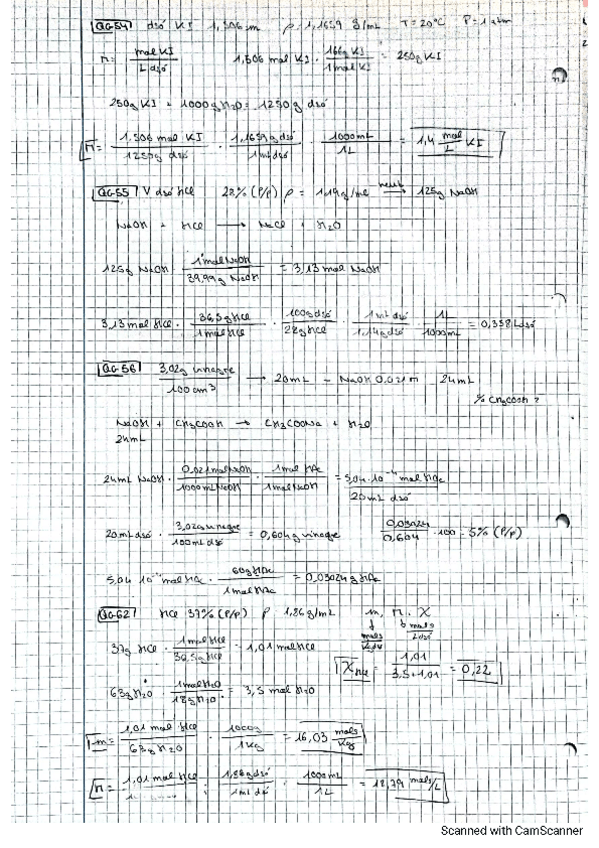 QG-54 dsó KI 1,506 m ρ = 1,1659 g/mL T = 20°C P = 1 atm
M = mol KI / L dsó 1,506 mol KI · 166g KI / 1 mol KI = 250g KI
250g KI + 1000g H2O = 1250g dsó
M = 1,506 mol KI / 1250g dsó · 1,1659g dsó / 1mL dsó · 1000mL / 1L = 1,4 mol/L KI
QG-55 V dsó HCl 28% (P/P) ρ = 1,14g/mL neut → 125g NaOH
NaOH + HCl → NaCl + H2O
125g NaOH · 1 mol NaOH / 39,99g NaOH = 3,13 mol NaOH
3,13 mol HCl · 36,5g HCl / 1 mol HCl · 100g dsó / 28g HCl · 1mL dsó / 1,14g dsó · 1L / 1000mL = 0,358 L dsó
QG-56 3,02g vinagre / 100cm³ → 20mL - NaOH 0,021M 24mL
% CH3COOH ?
NaOH + CH3COOH → CH3COONa + H2O
24mL
24mL NaOH · 0,021mol NaOH / 1000mL NaOH · 1mol HAc / 1mol NaOH = 5,04·10⁻⁴ mol HAc / 20mL dsó
20mL dsó · 3,02g vinagre / 100mL dsó = 0,604g vinagre 0,03024 / 0,604 · 100 = 5% (P/P)
5,04·10⁻⁴ mol HAc · 60g HAc / 1mol HAc = 0,03024g HAc
QG-62 HCl 37% (P/P) ρ 1,26g/mL m, M, X
mols / kg dv mols / L dsó
37g HCl · 1mol HCl / 36,5g HCl = 1,01 mol HCl X HCl = 1,01 / 3,5 + 1,01 = 0,22
63g H2O · 1mol H2O / 18g H2O = 3,5 mol H2O
m = 1,01 mol HCl / 63g H2O · 1000g / 1kg = 16,03 mols/kg
M = 1,01 mol HCl · 1mL dsó · 1000mL / 1L = mols/L
Scanned with CamScanner